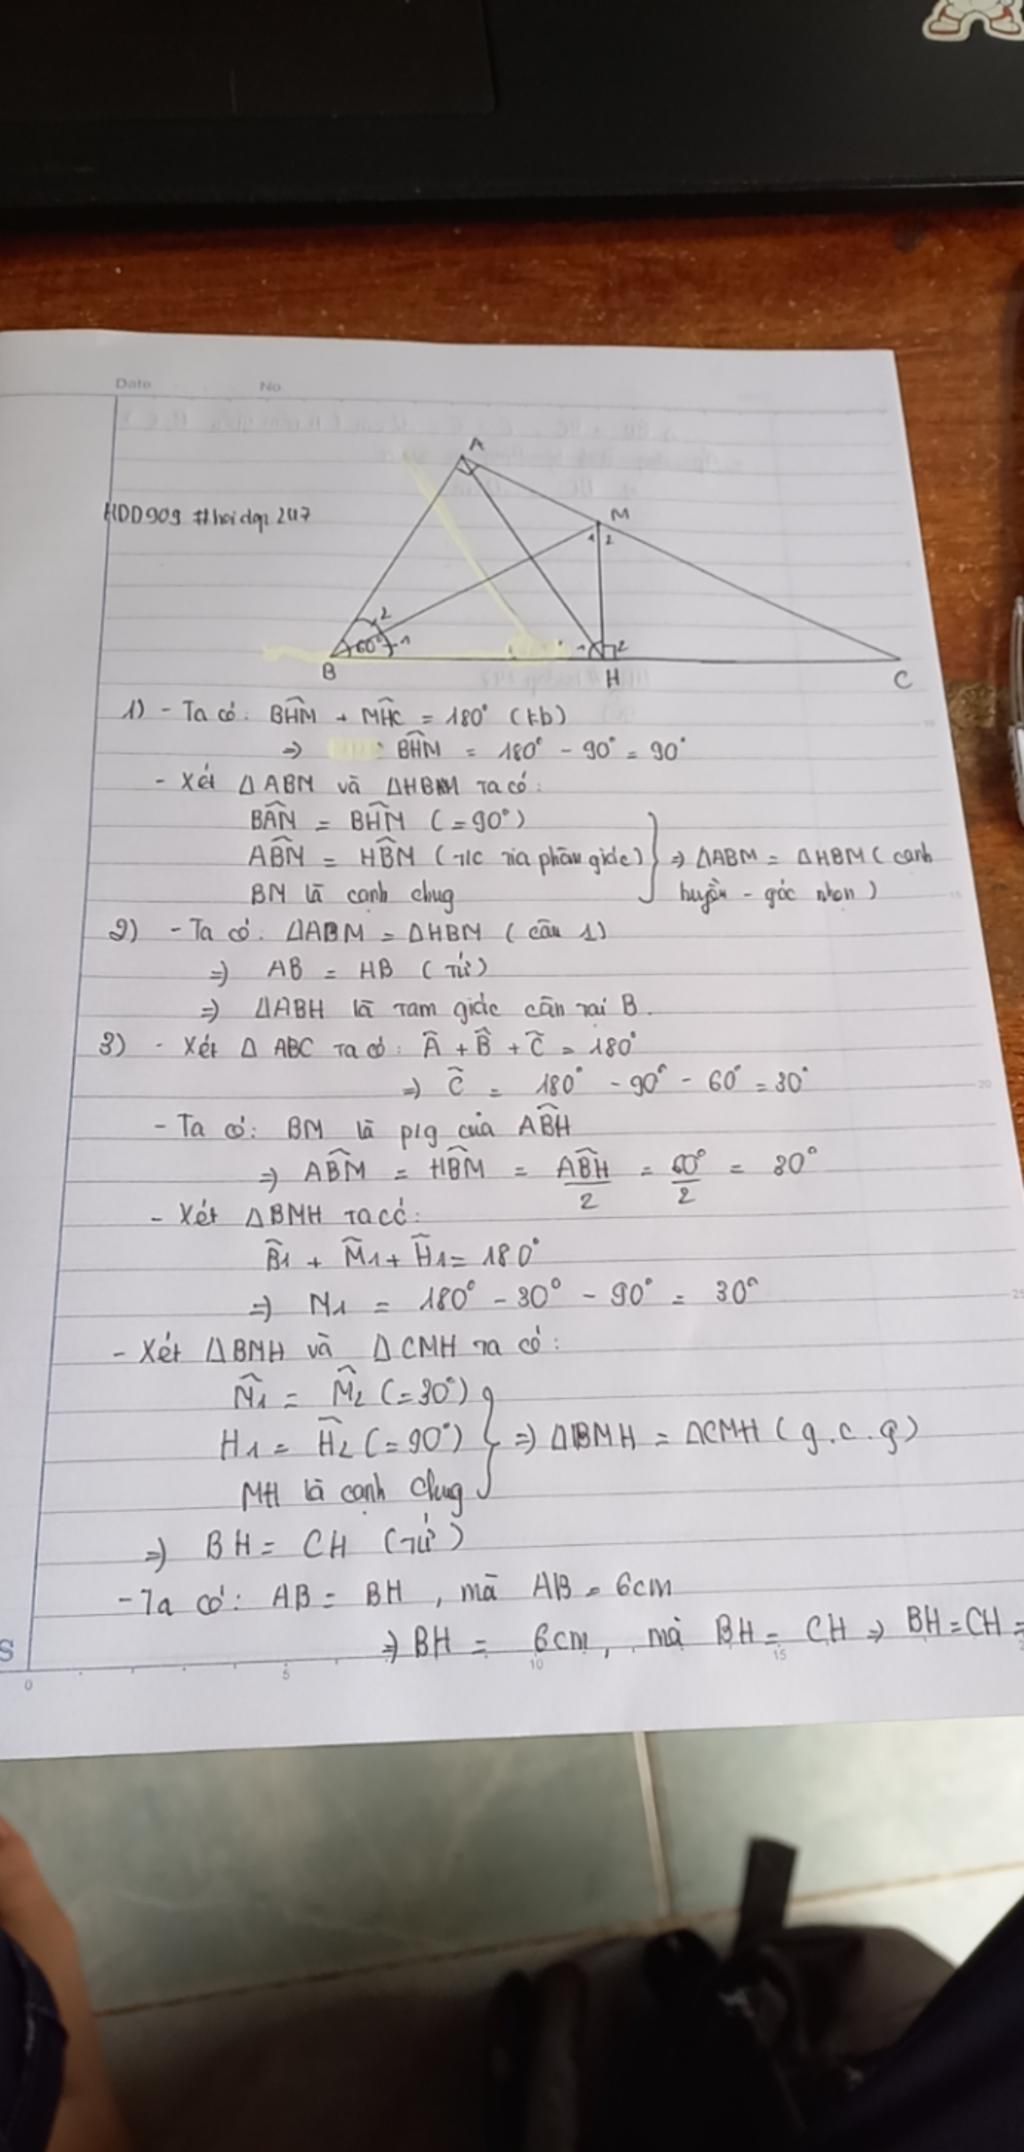 Date No.
A
HDD909 #hoidap247
M
1 2
2
60° 1
1 2
B H C
1) - Ta có: BHM + MHC = 180° (kb)
=> BHM = 180° - 90° = 90°
- Xét ΔABM và ΔHBM ta có:
BAN = BHM (=90°)
ABM = HBM (t/c tia phân giác) } => ΔABM = ΔHBM (cạnh
BM là cạnh chug huyền - góc nhọn)
2) - Ta có: ΔABM = ΔHBM (câu 1)
=> AB = HB (tứ)
=> ΔABH là tam giác cân tại B.
3) - Xét Δ ABC ta có: A + B + C = 180°
=> C = 180° - 90° - 60° = 30°
- Ta có: BM là p/g của ABH
=> ABM = HBM = ABH/2 = 60°/2 = 30°
- Xét ΔBMH ta có:
B1 + M1 + H1 = 180°
=> M1 = 180° - 30° - 90° = 30°
- Xét ΔBMH và ΔCMH ta có:
M1 = M2 (=30°)
H1 = H2 (=90°) } => ΔBMH = ΔCMH (g.c.g)
MH là cạnh chug
=> BH = CH (tứ)
- Ta có: AB = BH, mà AB = 6cm
=> BH = 6cm, mà BH = CH => BH=CH=
S
0 5 10 15